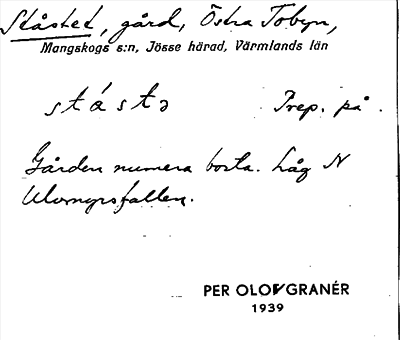 Ståstet, gård, Östra Tobyn,
Mangskogs s:n, Jösse härad, Värmlands län
stástə Prep. på.
Gården numera borta. Låg N
Ulvmyrsfallen.
PER OLOF GRANÉR
1939